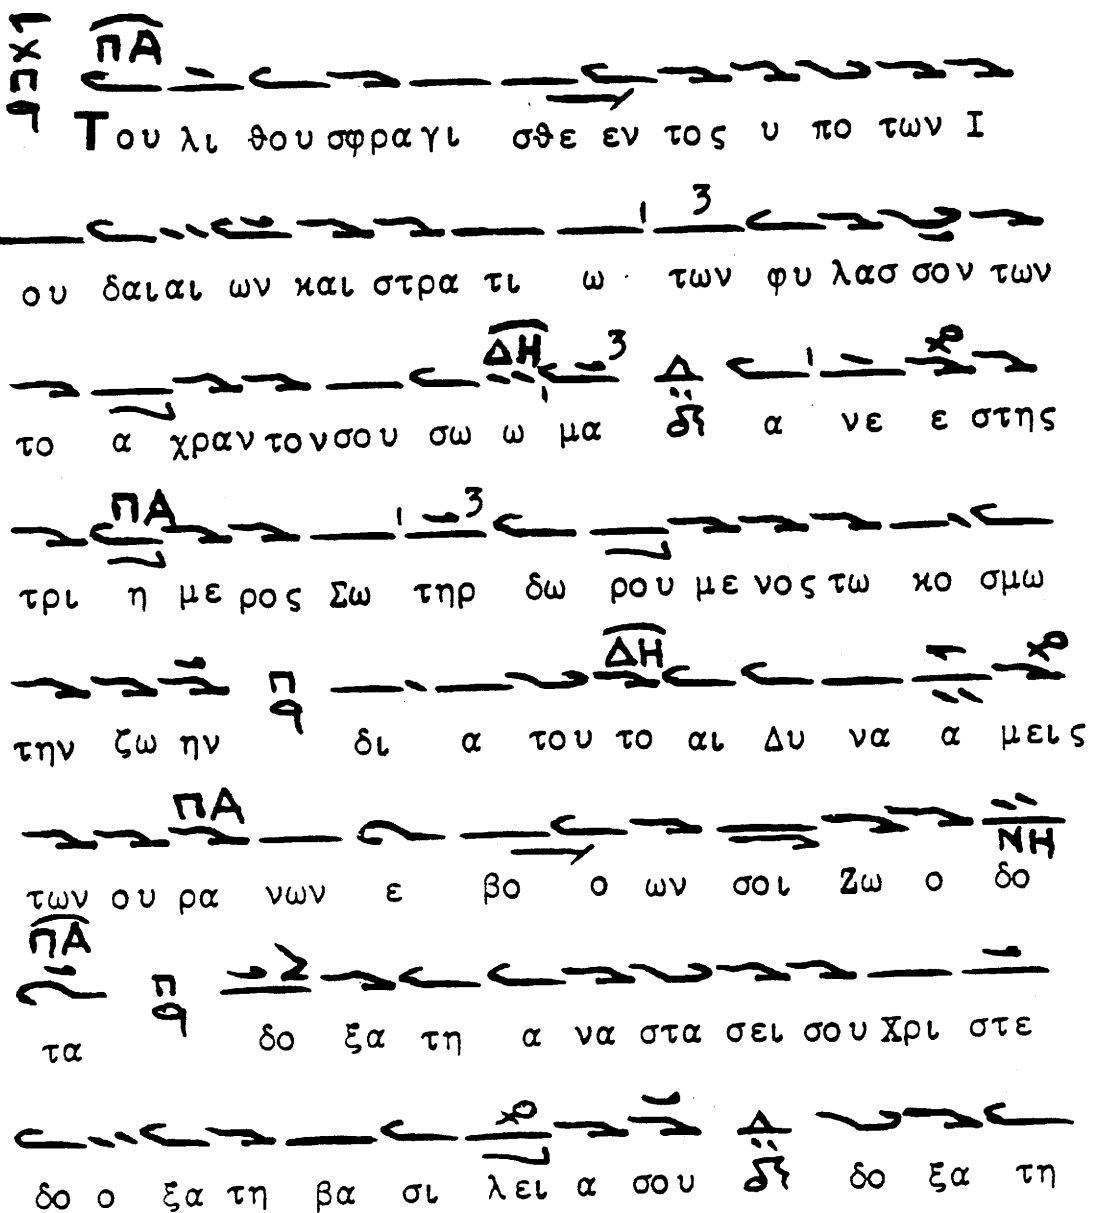 ΠΑ
Του λι θου σφρα γι σθε εν τος υ πο των Ι
ου δαι αι ων και στρα τι ω των φυ λασ σον των
ΔΗ
το α χραν τον σου σω ω μα Δ α νε ε στης
ΠΑ
τρι η με ρος Σω τηρ δω ρου με νος τω κο σμω
ΔΗ
την ζω ην π q δι α του το αι Δυ να α μεις
ΠΑ ΝΗ
των ου ρα νων ε βο ο ων σοι Ζω ο δο
ΠΑ
τα π q δο ξα τη α να στα σει σου Χρι στε
δο ο ξα τη βα σι λει α σου Δ δο ξα τη